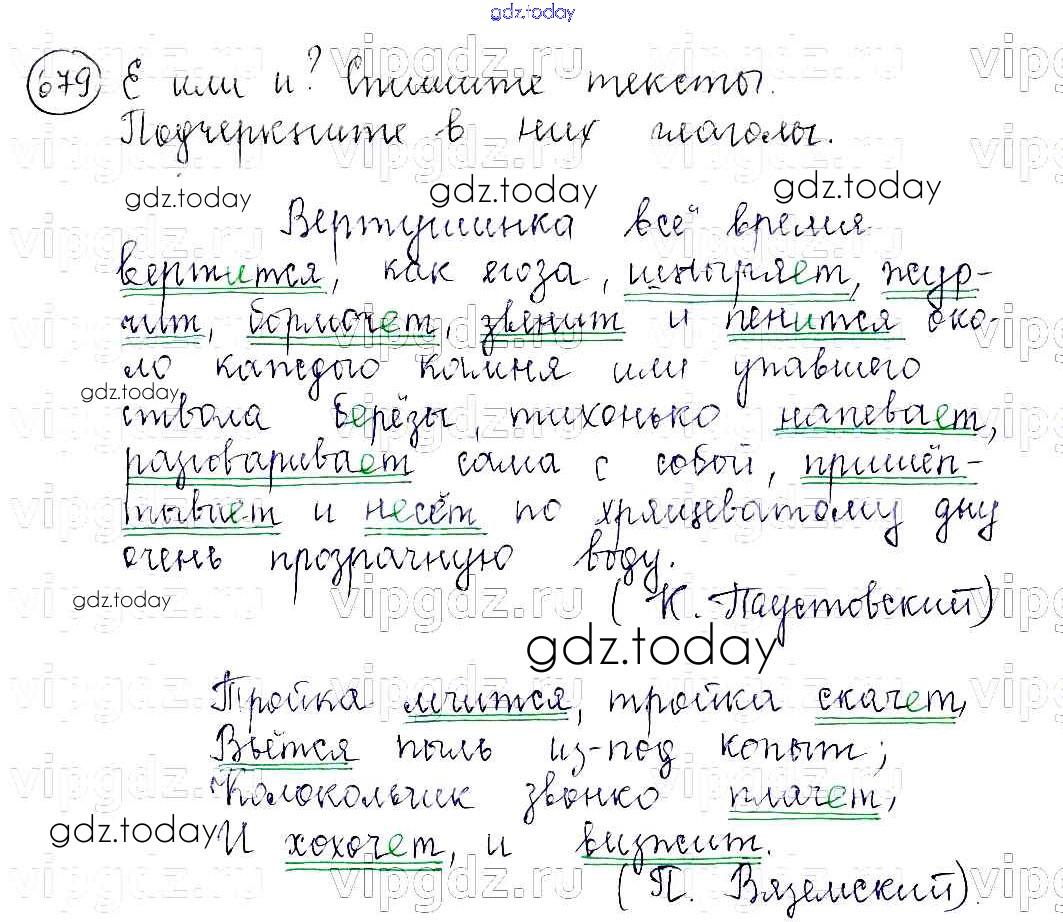 gdz.today
679 Е или и? Спишите тексты.
Подчеркните в них глаголы.
gdz.today gdz.today gdz.today
Вертушинка всё время
вертится, как егоза, шныряет, жур-
чит, бормочет, звенит и пенится око-
ло каждого камня или упавшего
gdz.today
ствола берёзы, тихонько напевает,
разговаривает сама с собой, пришёп-
тывает и несёт по хрящеватому дну
очень прозрачную воду.
gdz.today
(К. Паустовский)
gdz.today
Тройка мчится, тройка скачет,
Вьётся пыль из-под копыт;
Колокольчик звонко плачет,
gdz.today
И хохочет, и визжит.
(П. Вяземский).
vipgdz.ru